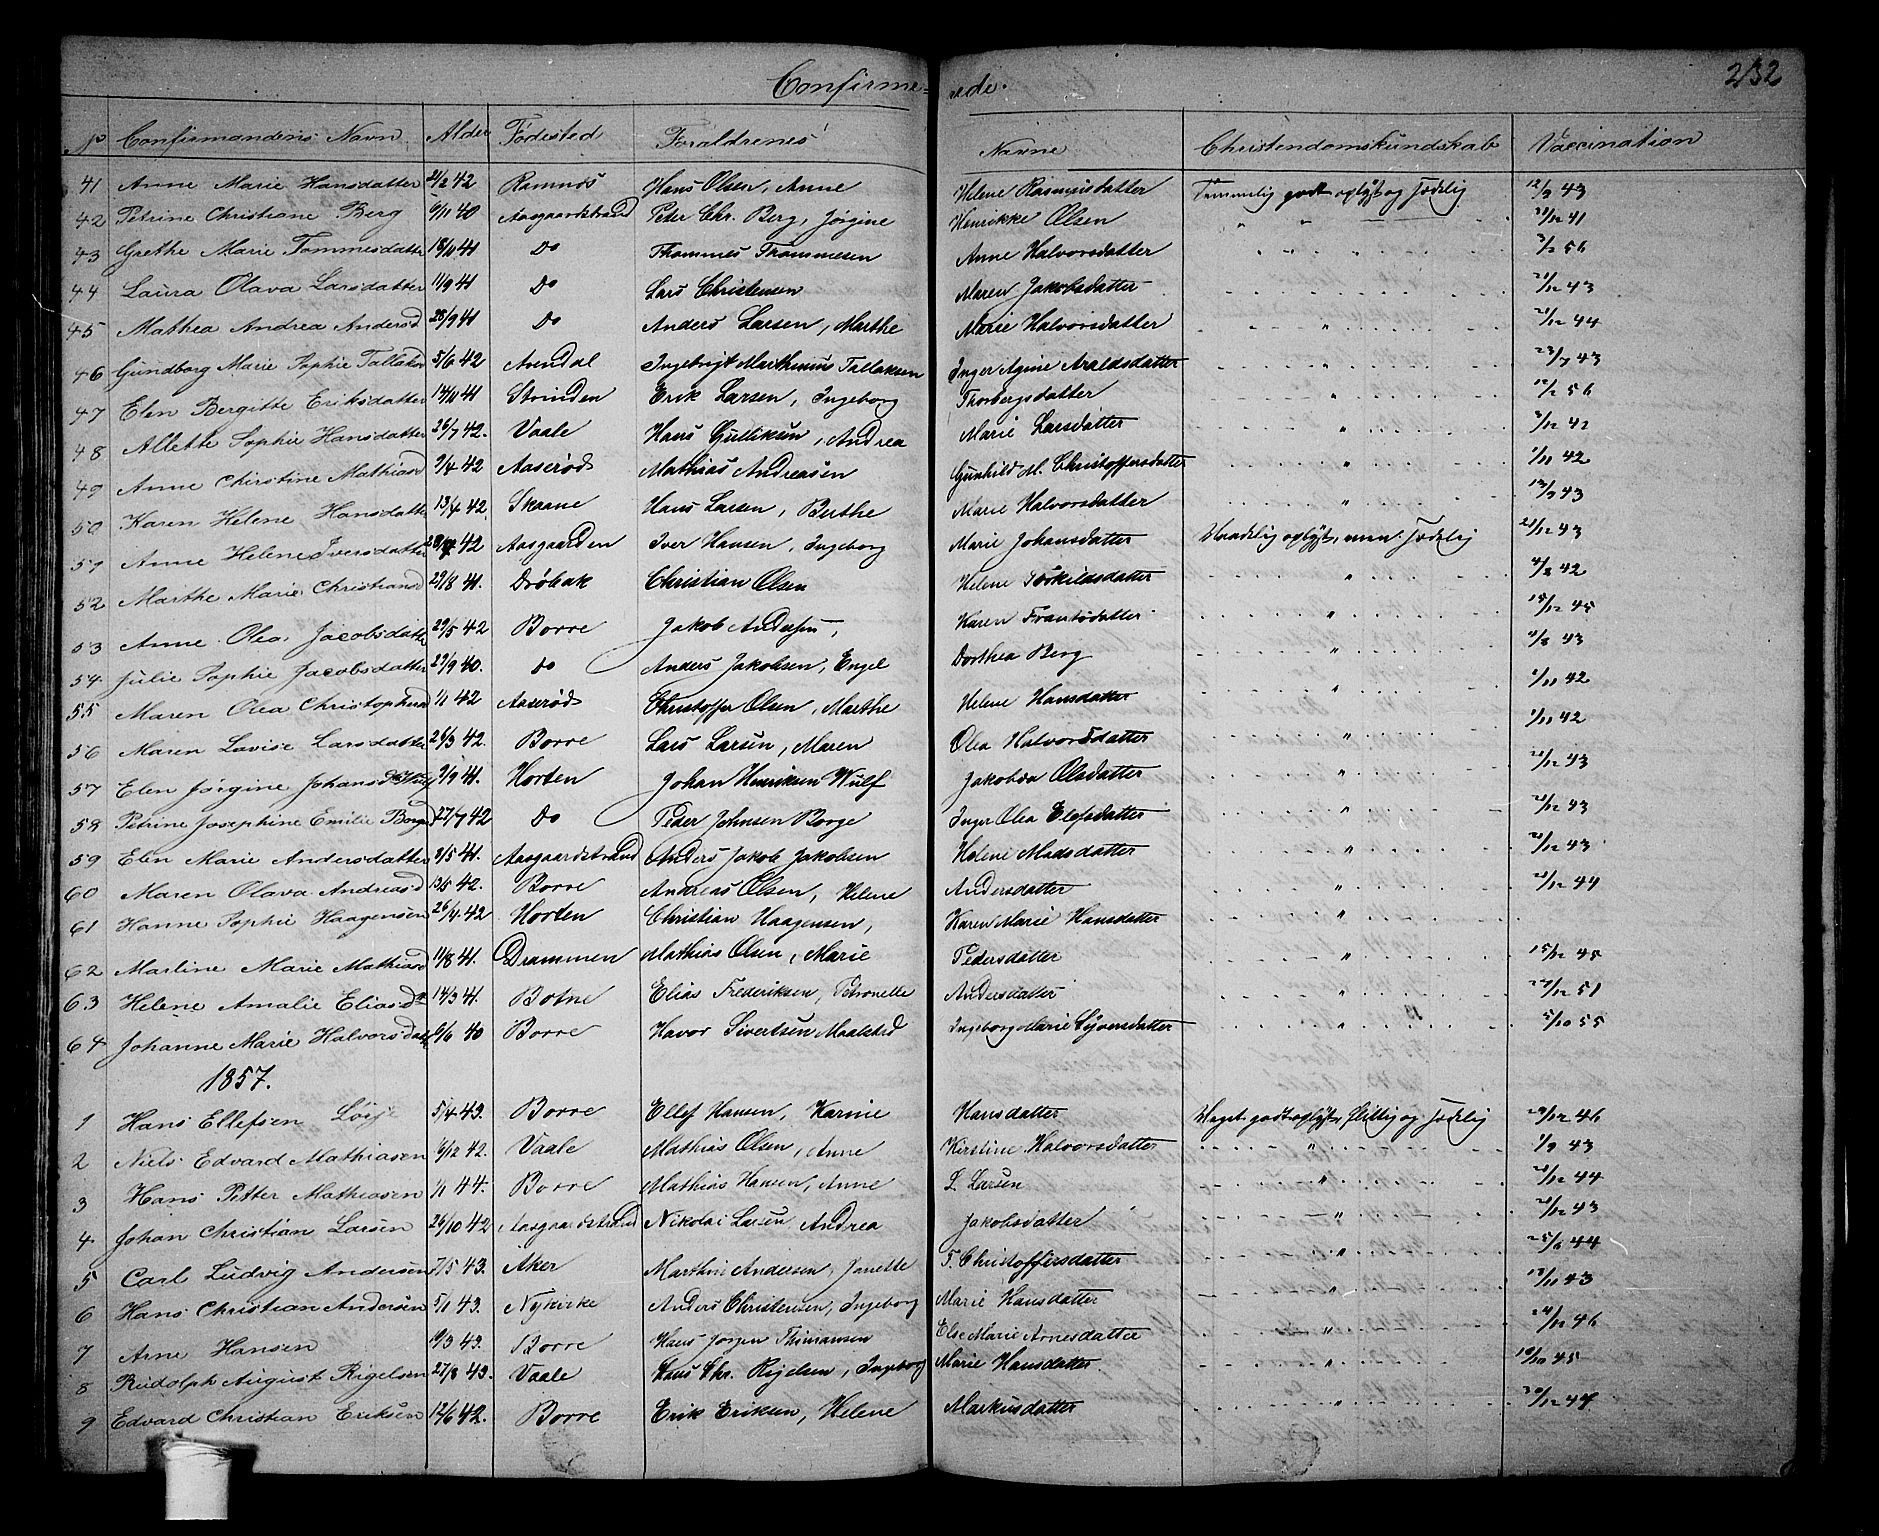 Confirmerede. 232
No Confirmandens Navn Alder Fødested Foraldrenes Navne Christendomskundskab Vaccination
41 Anne Marie Hansdatter 21/2 42 Ramnæs Hans Olsen, Anne Helene Rasmusdatter Temmelig godt oplyst og Sædelig 12/3 43
42 Petrine Christiane Berg 6/11 40 Aasgaardstrand Peter Chr. Berg, Jørgine Henrikke Olsen " " 21/12 41
43 Grethe Marie Tommesdatter 18/10 41 Do Thommes Thommesen Anne Halvorsdatter " " 3/3 56
44 Laura Olava Larsdatter 11/9 41 Do Lars Christensen Maren Jakobsdatter 21/12 43
45 Mathea Andrea Andersd 28/9 41 Do Anders Larsen, Marthe Marie Halvorsdatter " 21/12 44
46 Gundborg Marie Sophie Tallaks 5/6 42 Arendal Ingebrigt Marthinius Tallaksen Inger Agine Araldsdatter " 23/7 43
47 Elen Bergitte Eriksdatter 14/10 41 Strinden Erik Larsen, Ingeborg Thorbergsdatter " 12/2 56
48 Allette Sophie Hansdatter 26/7 42. Vaale Hans Gulliksen, Andrea Marie Larsdatter " 3/12 42
49 Anne Christine Mathiasd 9/4 42 Aaserød Mathias Andreasen Gunhild M. Christoffersdatter " 1/11 42
50 Karen Helene Hansdatter 13/4 42. Skaane Hans Larsen, Berthe Marie Halvorsdatter " 13/7 43
51 Anne Helene Iversdatter 42 Aasgaarden Iver Hansen, Ingeborg Marie Johansdatter Maadelig oplyst, men Sædelig 21/12 43
52 Marthe Marie Christiansd 29/8 41. Drøbak Christian Olsen Helene Torkildsdatter " 4/2 42
53 Anne Olea Jacobsdatter 29/5 42 Borre Jakob Andersen, Karen Frantsdatter " 15/12 45
54 Julie Sophie Jacobsdatter 29/9 40. Do Anders Jakobsen, Engel Dorthea Berg " 4/8 43
55 Maren Olea Christophersd 1/1 42 Aaserød Christoffer Olsen, Marthe Helene Hansdatter " 1/11 42
56 Maren Lovise Larsdatter 26/3 42. Borre Lars Larsen, Maren Olea Halvorsdatter " 1/11 42
57 Elen Jørgine Johansd Wulf 9/9 41. Horten Johan Henriksen Wulf Jakobea Olsdatter " 21/12 43
58 Petrine Josephine Emilie Borge 27/7 42 Do Peder Johnsen Borge Inger Olea Elefsdatter " 21/12 43
59 Elen Marie Andersdatter 3/5 41. Aasgaardstrand Anders Jakob Jakobsen Helene Madsdatter " 21/12 43
60 Maren Olava Andreasd 13/5 42. Borre Andreas Olsen, Helene Andersdatter " 21/12 44
61 Hanne Sophie Haagensen 26/4 42 Horten Christian Haagensen, Karen Marie Hansdatter "
62 Marline Marie Mathiasd 11/8 41. Drammen Mathias Olsen, Marie Pedersdatter " 15/12 45
63 Helene Amalie Eliasd 14/3 41. Botne Elias Frederiksen, Petronelle Andersdatter " 21/12 51
64 Johanne Marie Halvorsdatt 6/6 40 Borre Havor Sivertsen Maalsted Ingeborg Marie Syversdatter " 5/10 55
1857.
1 Hans Ellefsen 5/4 43. Borre Ellef Hansen, Karine Hansdatter Meget godt oplyst flittig og Sædelig 29/12 46
2 Niels Edvard Mathiasen 6/12 42. Vaale Mathias Olsen, Anne Kirstine Halvorsdatter " 1/9 43
3 Hans Petter Mathiasen 1/1 44. Borre Mathias Hansen, Anne L. Larsen " 21/12 44
4 Johan Christian Larsen 26/10 42 Aasgaardstrand Nikolai Larsen, Andrea Jakobsdatter " 21/12 43
5 Carl Ludvig Andersen 7/5 43. Aker Marthin Andersen, Janette T. Christoffersdatter " 25/6 44
6 Hans Christian Andersen 5/1 43. Nykirke Anders Christensen, Ingeborg Marie Hansdatter " 13/11 43
7 Arne Hansen 19/3 43. Borre Hans Jørgen Thomassen Else Marie Arnesdatter " 21/12 46
8 Rudolph August Rigelsen 27/8 43. Vaale Hans Chr. Rigelsen, Ingeborg Marie Hansdatter " 19/10 45
9 Edvard Christian Eriksen 12/6 42. Borre Erik Eriksen, Helene Markusdatter " 30/12 44